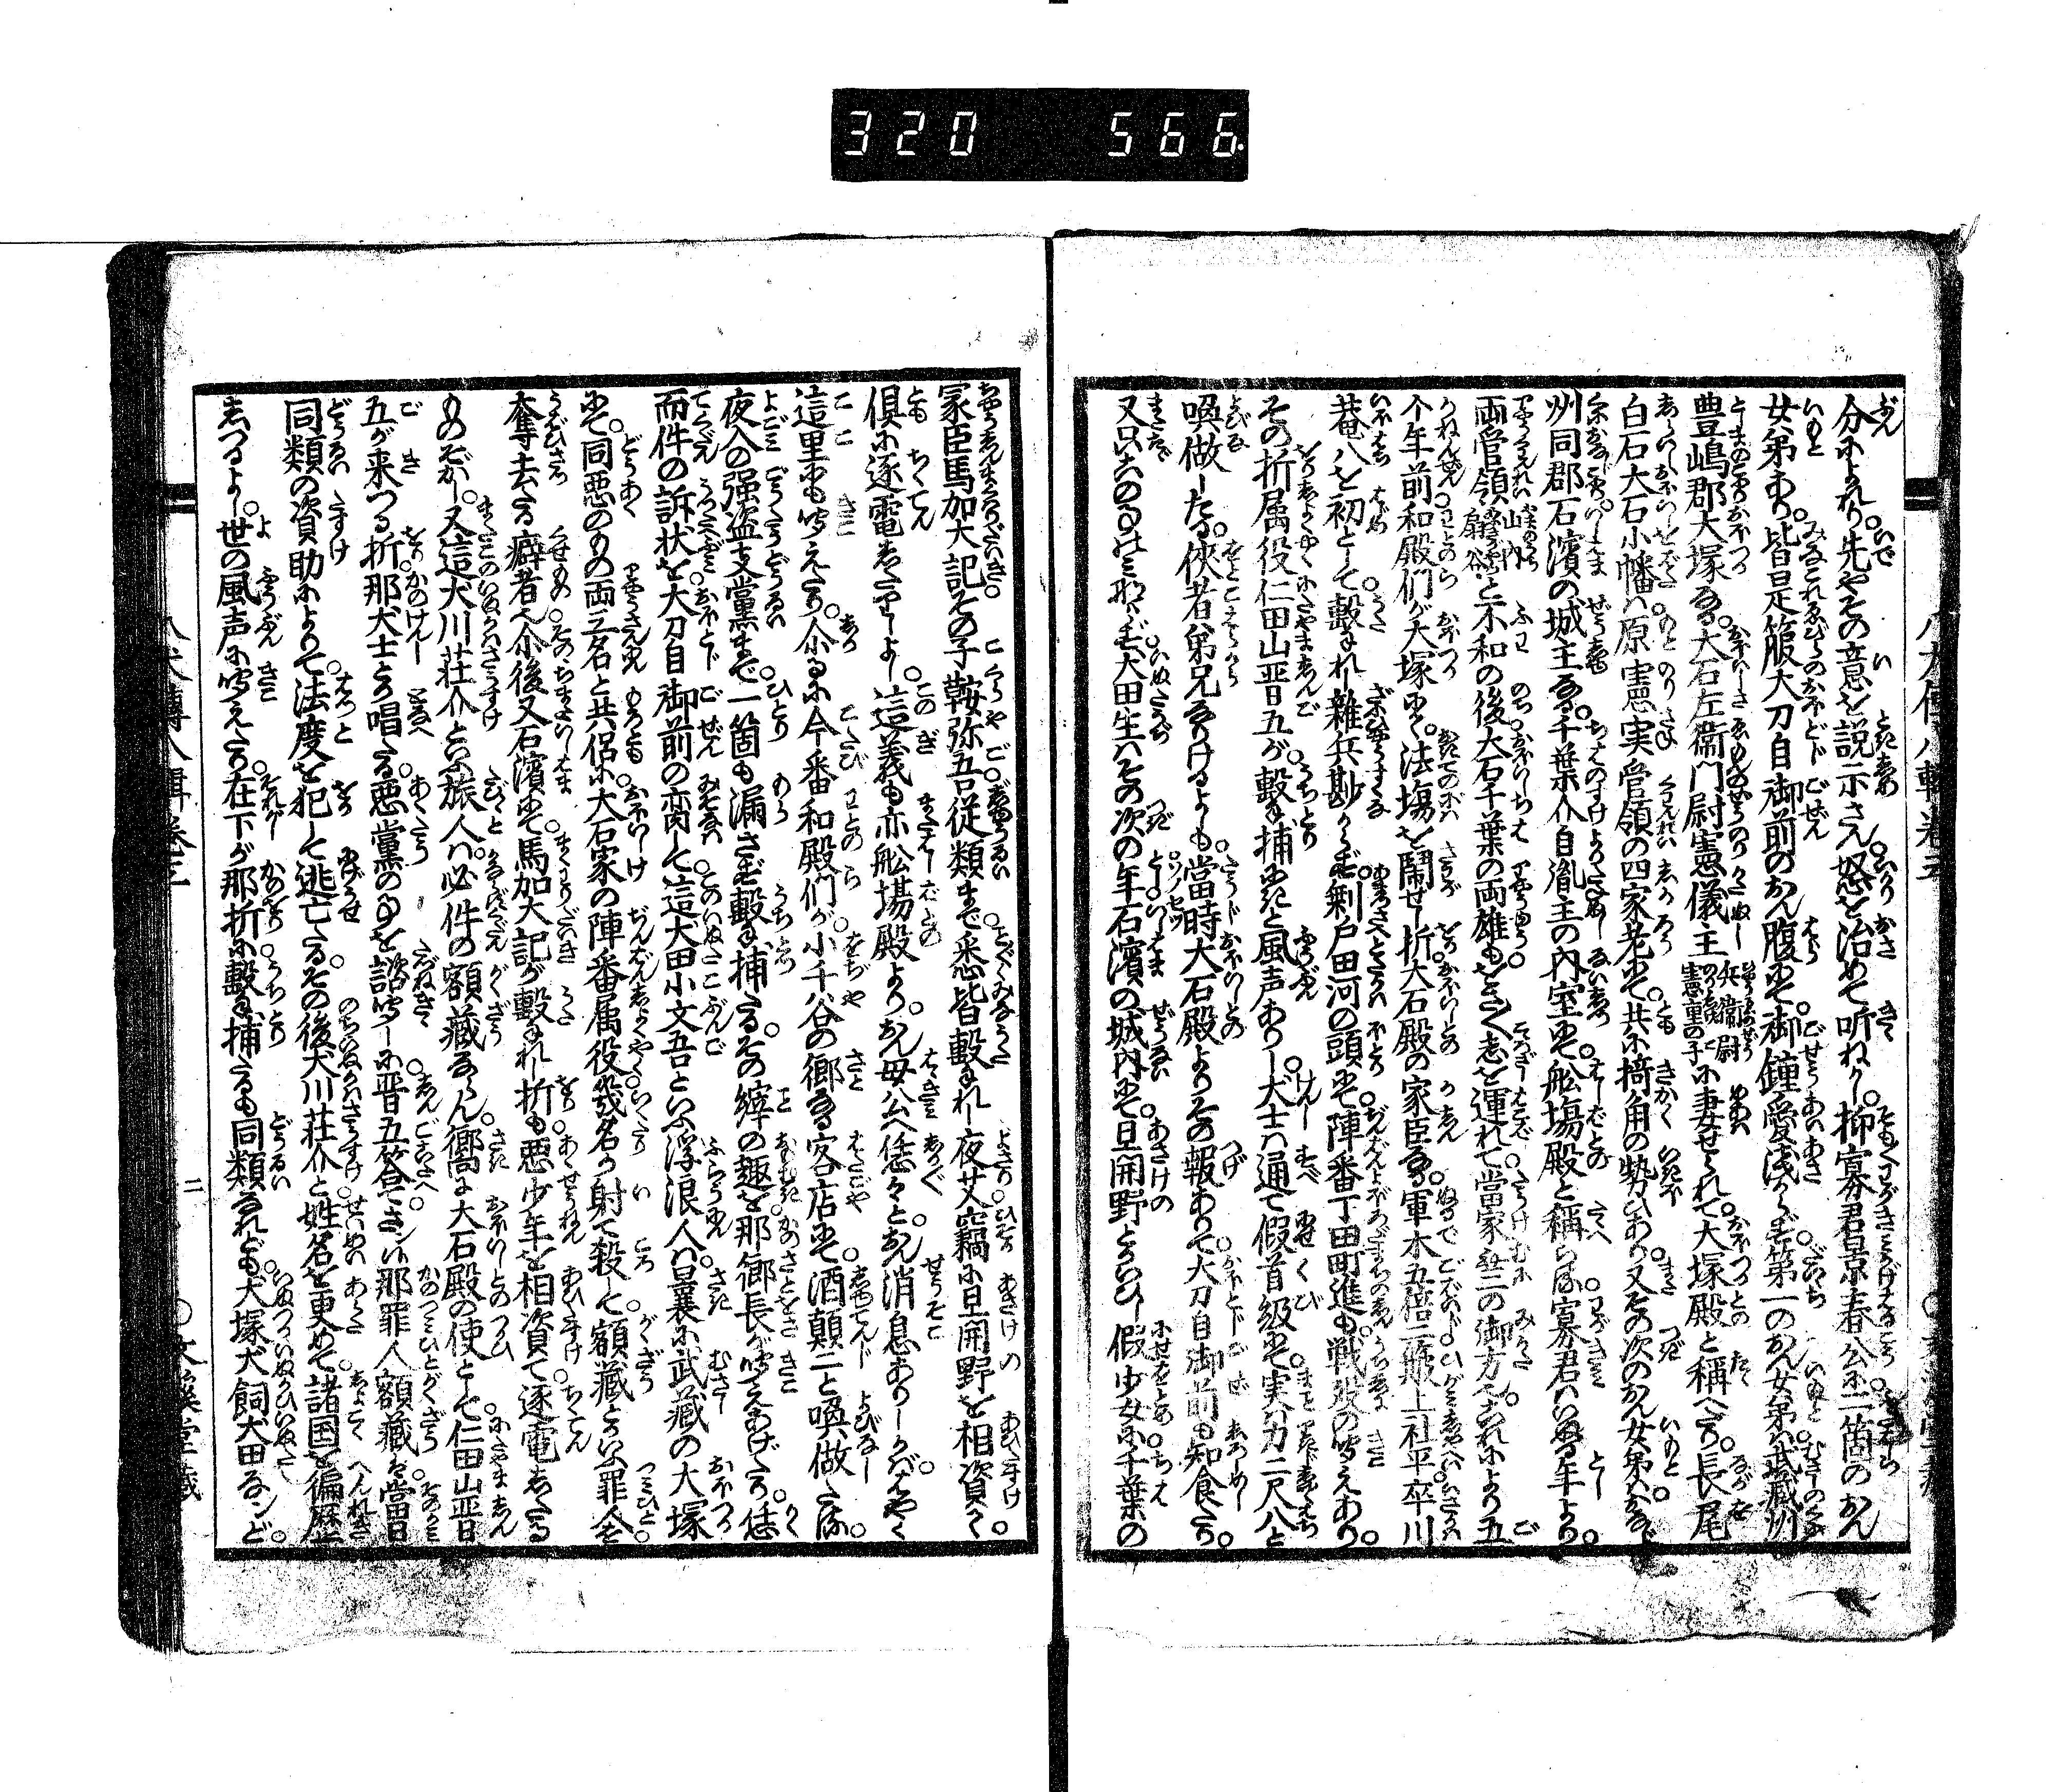 320 566
分によれり。先やその意を説示さん。怒を治めて听ねかし。抑寡君景春公に一箇のおん
女弟あり。皆是箙大刀自御前のおん腹にて。御鐘愛浅からず。第一のおん女弟は武藏州
豊嶋郡大塚なる。大石左衞門尉憲儀主 兵衞尉憲重の子 に妻せられて。大塚殿と稱へたり。長尾
白石大石小幡は。原憲実管領の四家老にて。共に掎角の勢ひあり。又その次のおん女弟は。おなじ
州同郡石濱の城主なる。千葉介自胤主の内室にて。舩場殿と稱らる。寡君はいぬる年より。
両管領 山内扇谷 と不和の後。大石千葉の両雄も。をさをさ志を運れて。當家無二の御方
个年前和殿們が大塚にて。法場を鬧せし折。大石殿の家臣なる。軍木五倍二。簸上社平。卒川
菴八を初として。撃れし雜兵尠からず。剩戸田河の頭にて。陣番丁田町進も戦歿の聞えあり。
その折属役仁田山晋五が。撃も捕にきと風声ありし。犬士は通て假首級にて。実は力二尺八と
喚做したる。俠者弟兄なりけるよしも。當時大石殿よりその報ありて。大刀自御前も知食たり。
又只六のみならず。犬田生はその次の年。石濱の城内にて。旦開野とかいひし。假少女に千葉の
家臣馬加大記。その子鞍弥五。従類まで。悉皆撃れし夜艾。竊に旦開野を相資けて。
倶に逐電したりしよし。這義も亦舩場殿より。おん母公へ恁々と。おん消息ありしかば。はやく
這里にも聞えたり。尓るに今番和殿們が。小千谷の郷なる客店にて。酒顛二と喚做したる。
夜入の强盗支黨まで。一箇も漏さず撃も捕たる。その縡の趣を。那郷長が聞えあげたり。恁
而件の訴状を。大刀自御前の啇して。這犬田小文吾といふ浮浪人は。曩に武藏の大塚
にて。同惡のもの両三名と共侶に。大石家の陣番属役。幾名か射て殺して。額藏といふ罪人を。
奪去たる癖者也。尓後又石濱にて。馬加大記が撃れし折も。惡少年を相資て。逐電したる
ものぞかし。又這犬川荘介といふ旅人は。必件の額藏ならん。嚮に大石殿の使として。仁田山晋
五が来つる折。那犬士とか唱たる。惡黨の事を詰聞しに。晋五答て。さン候那罪人額藏は。當日
同類の資助によりて。法度を犯して逃亡たる。その後犬川荘介と姓名を更めて。諸国を徧歴
しつるよし。世の風声に聞えたり。在下が那折に撃も捕たるも同類なれども。犬塚犬飼犬田なンど。
文溪堂藏